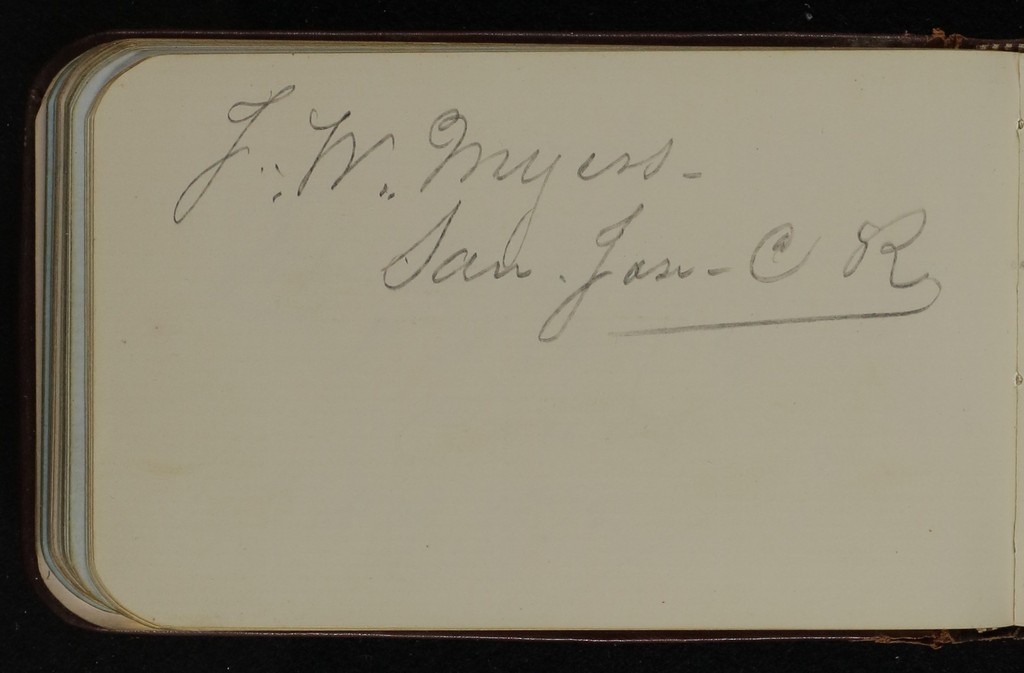 J. W. Myers -
San Jose - C R